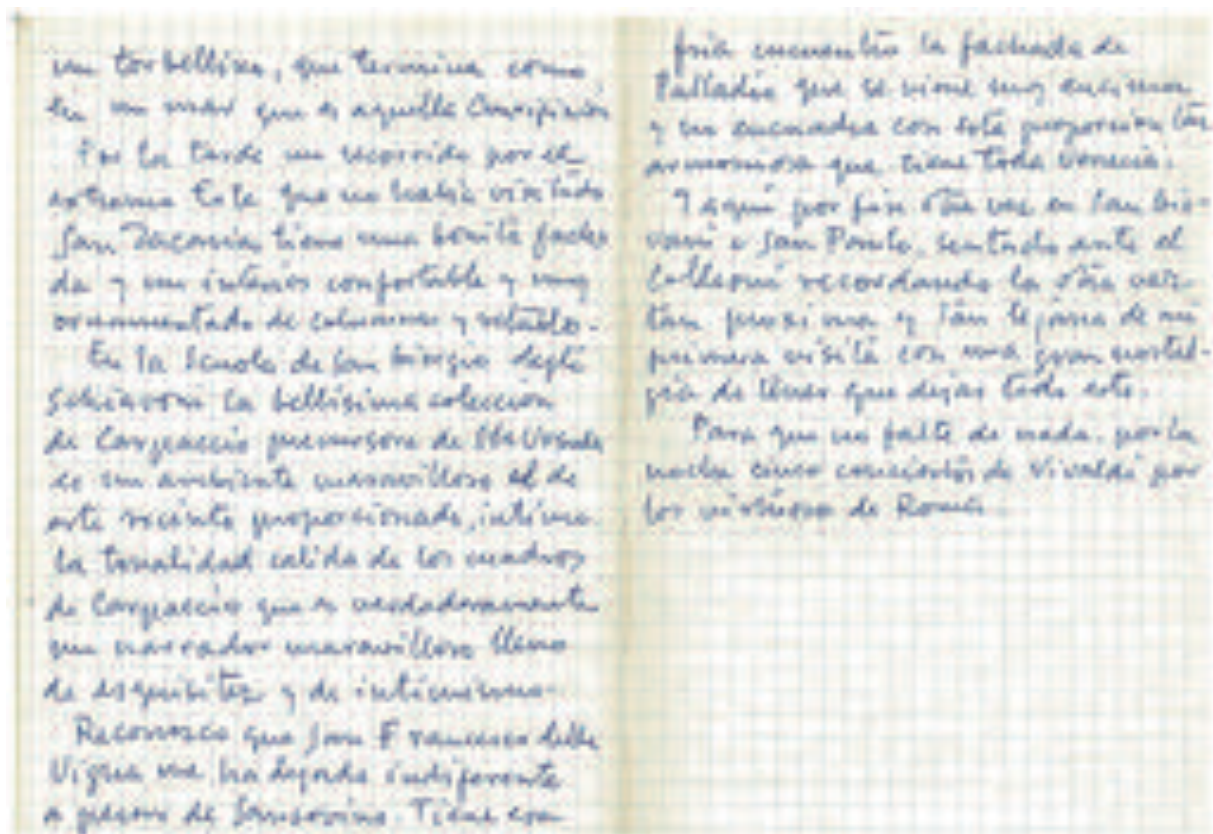 un torbellino, que termina como
en un mar que es aquella
Por la tarde un recorrido por el
extremo Este que no había visitado
San Zaccaria tiene una bonita facha
da y un interior confortable y muy
ornamentado de columnas y retablos.
En la Scuola de San Giorgio degli
Schiavoni la bellisima coleccion
de Carpaccio precursora de Sta Ursula
es un ambiente maravilloso el de
este recinto proporcionado, intimo.
la tonalidad calida de los cuadros
de Carpaccio que es verdaderamente
un narrador maravilloso lleno
de esquisitez y de intimismo.
Reconozco que San Francesco della
Vigna me ha dejado indiferente
a pesar de Sansovino. Tiene esa
fria encuentro la fachada de
Palladio que se viene muy encima
y no encuadra con esta proporcion tan
armoniosa que tiene toda Venecia.
Y aqui por fin otra vez en San Gio-
vani e San Paolo, sentado ante el
Colleoni recordando la otra vez
tan proxima y tan lejana de mi
primera visita con una gran nostal-
gia de tener que dejar todo esto.
Para que no falte de nada. por la
noche cinco conciertos de Vivaldi por
los virtuosos de Roma